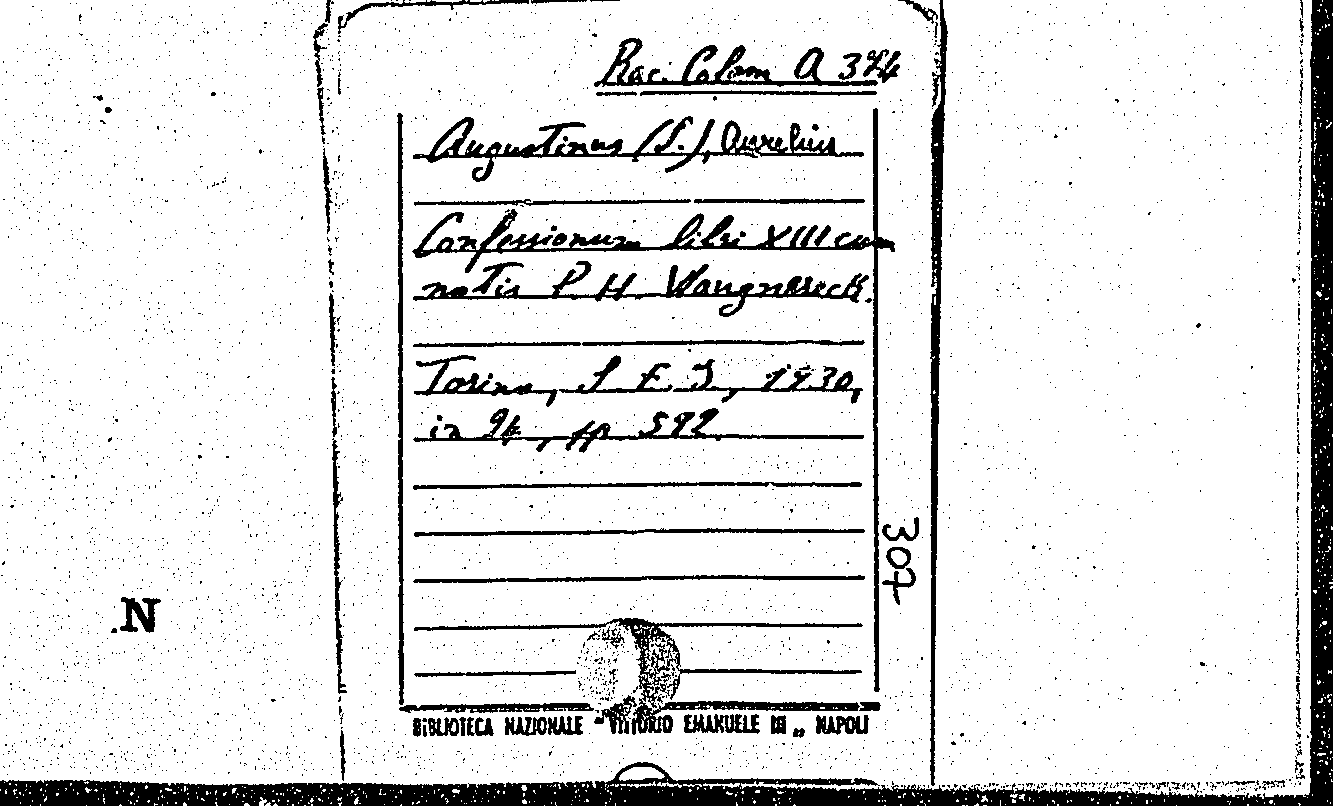 Rac. Colom A 324
Augustinus (S.), Aurelius
Confessionum libri XIII cum
notis P. H. Wangnereck.
Torino, S. E. I., 1930,
in 24, pp 592.
307
.N
BIBLIOTECA NAZIONALE "VITTORIO EMANUELE III„ NAPOLI